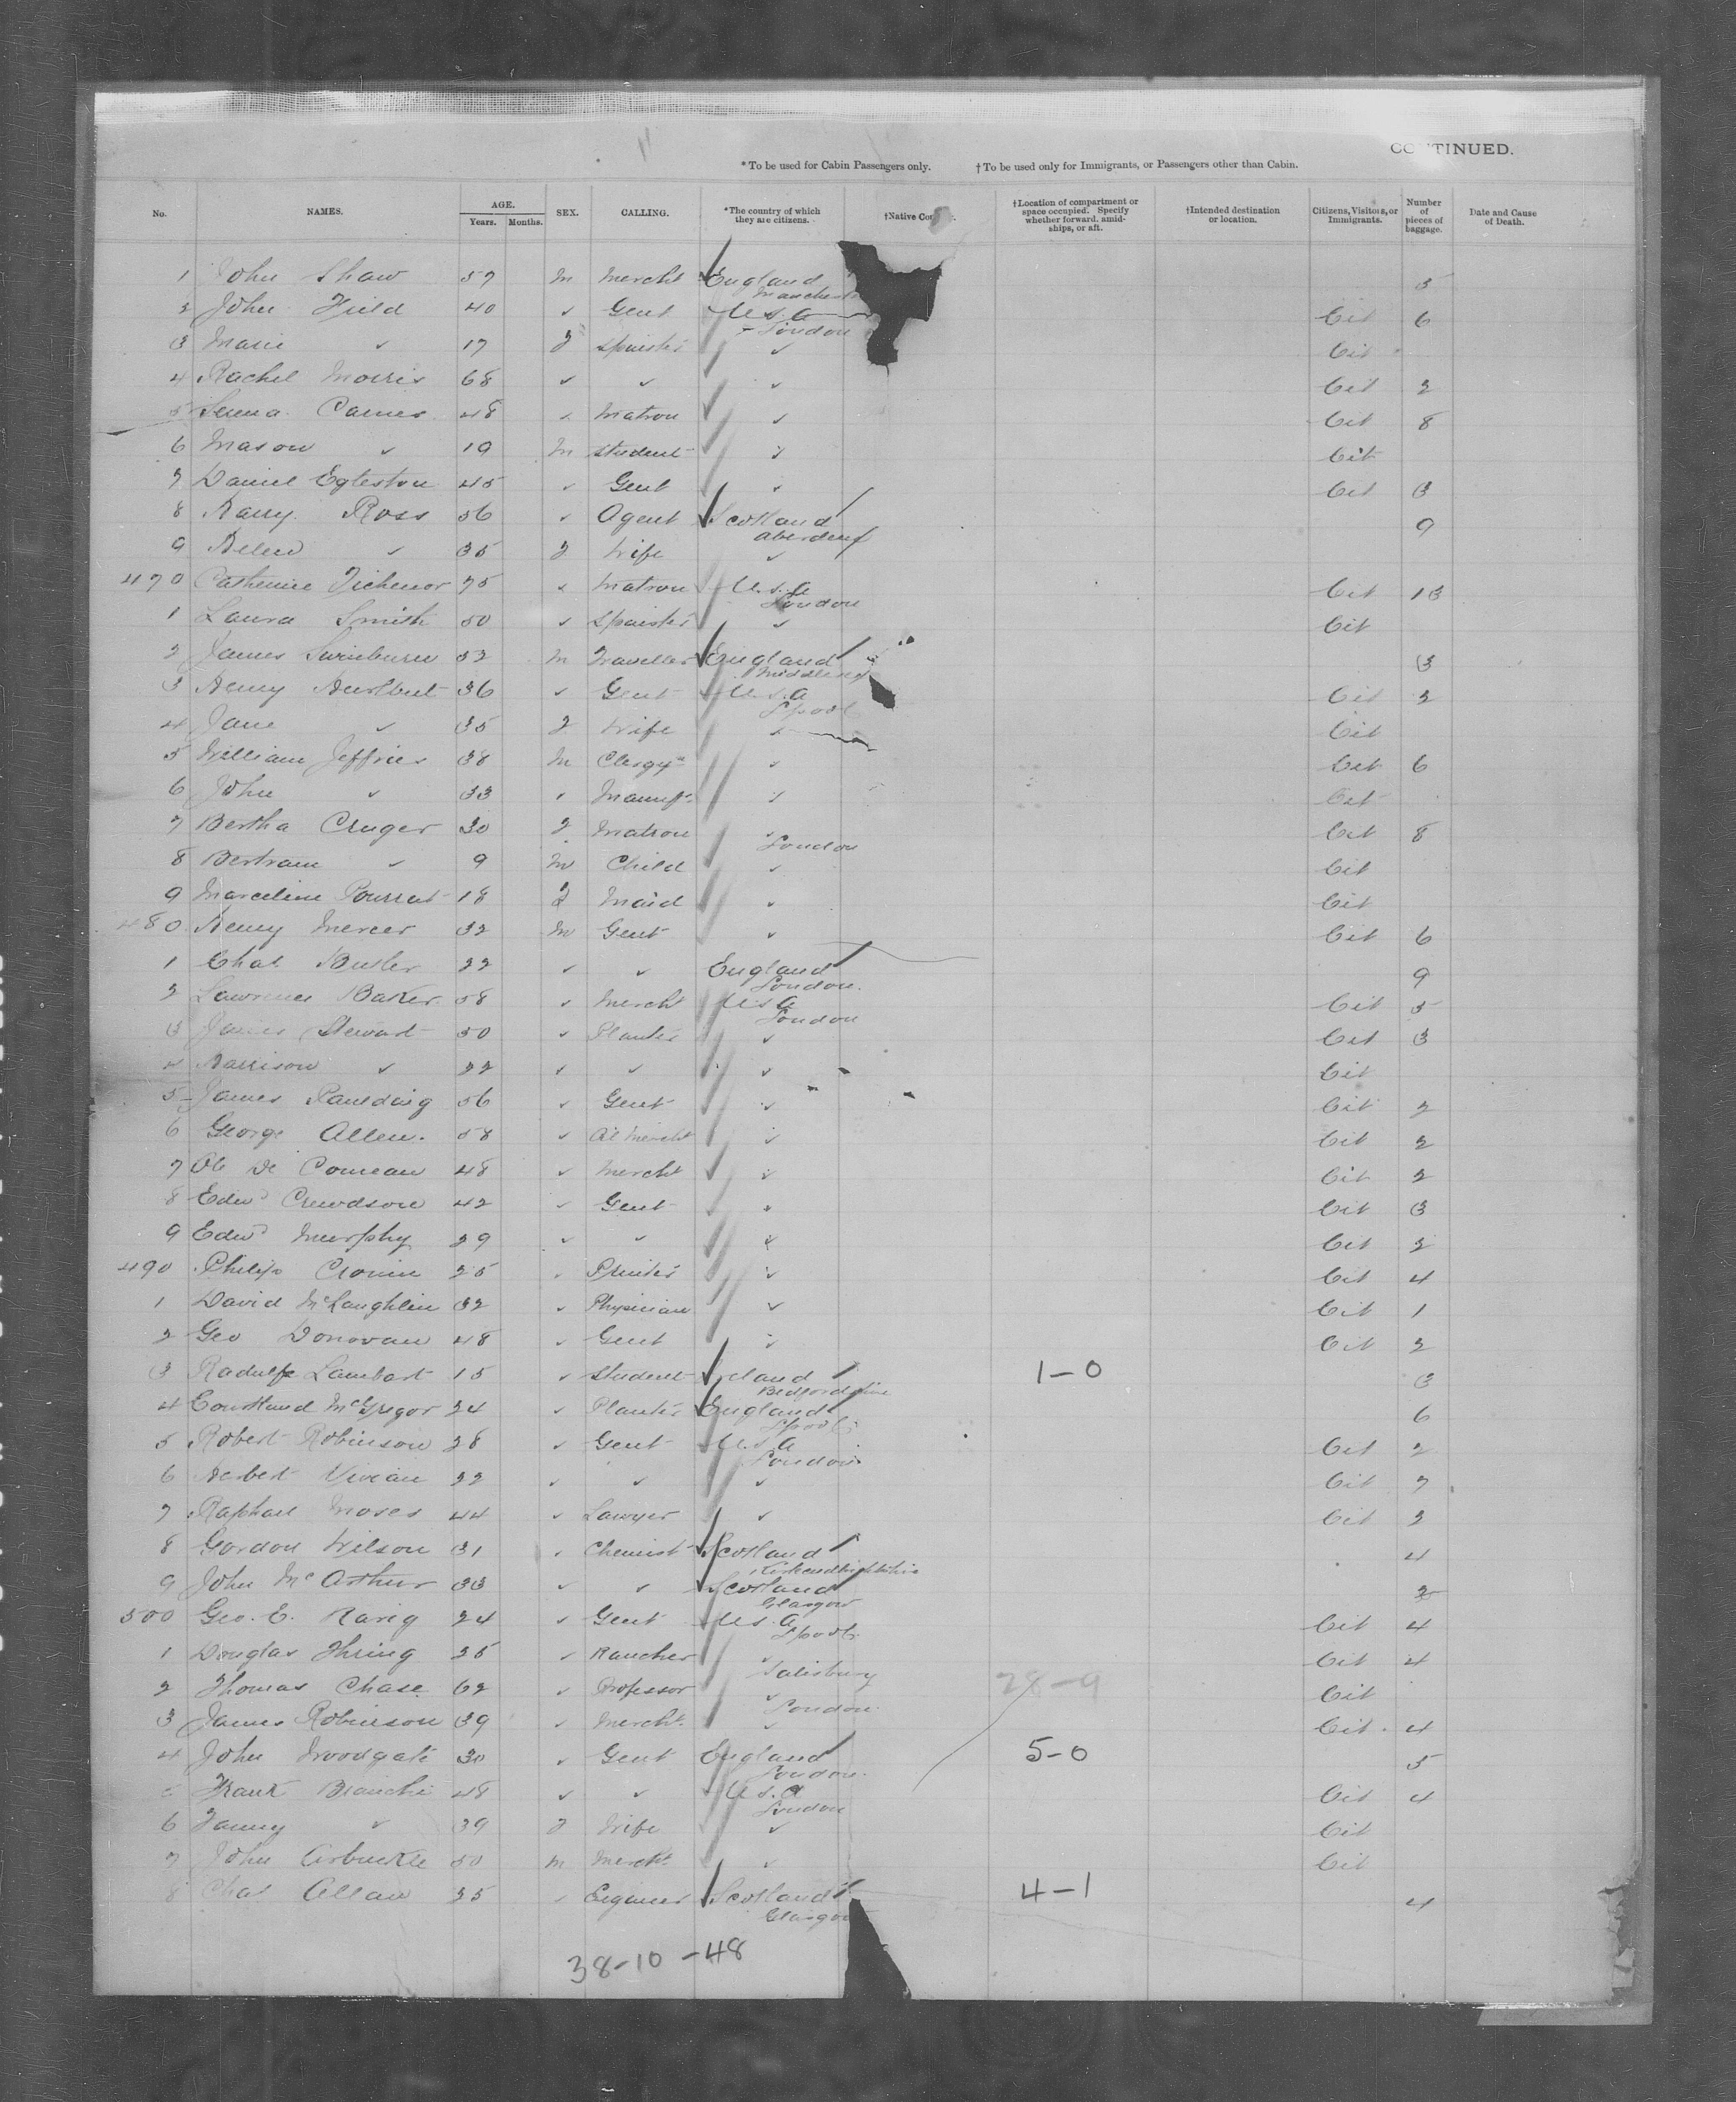 CONTINUED.
* To be used for Cabin Passengers only. † To be used only for Immigrants, or Passengers other than Cabin.
No. NAMES. AGE. Years. Months. SEX. CALLING. *The country of which they are citizens. †Native Co . †Location of compartment or space occupied. Specify whether forward, amidships, or aft. †Intended destination or location. Citizens, Visitors, or Immigrants. Number of pieces of baggage. Date and Cause of Death.
1 John Shaw 57 M Mercht England 5
Manchester
2 John Field 40 ✓ Gent U.S.A Cit 6
London
3 Marie ✓ 17 F Spinster ✓ Cit
4 Rachel Morris 68 ✓ ✓ ✓ Cit 2
5 Serena 48 ✓ Matron ✓ Cit 8
6 Mason ✓ 19 M Student ✓ Cit
7 Daniel Egleston 45 ✓ Gent ✓ Cit 3
8 Harry Ross 56 ✓ Agent Scotland 9
Aberdeen
9 Helen ✓ 35 F Wife ✓
470 Catherine Tichenor 75 ✓ Matron U.S.A Cit 13
London
1 Laura Smith 50 ✓ Spinster ✓ Cit
2 James Swinburn 52 M Traveller England 3
3 Henry Hurlbut 36 ✓ Gent U.S.A Cit 2
Lpool
4 Jane ✓ 35 F Wife ✓ Cit
5 William Jeffries 38 M Clergyn ✓ Cit 6
6 John ✓ 33 ✓ Manufr ✓ Cit
7 Bertha Cruger 30 F Matron ✓ Cit 8
London
8 Bertram ✓ 9 M Child ✓ Cit
9 Marceline Pourrat 18 F Maid ✓ Cit
480 Henry Mercer 32 M Gent ✓ Cit 6
1 Chas Butler 22 ✓ ✓ England 9
London.
2 Lawrence Baker 58 ✓ Mercht U.S.A Cit 5
London
3 James Stewart 50 ✓ Planter ✓ Cit 3
4 Harrison ✓ 22 ✓ ✓ ✓ Cit
5 James Paulding 56 ✓ Gent ✓ Cit 2
6 George Allen. 58 ✓ Oil Mercht ✓ Cit 2
7 De Comeau 48 ✓ Mercht ✓ Cit 2
8 Edwd Crewdson 42 ✓ Gent ✓ Cit 3
9 Edwd Murphy 29 ✓ ✓ ✓ Cit 2
490 Philip Cronin 25 ✓ Printer ✓ Cit 4
1 David McLaughlin 32 ✓ Physician ✓ Cit 1
2 Geo Donovan 48 ✓ Gent ✓ Cit 2
3 Radulfe Lambart 15 ✓ Student Ireland 1-0 3
Bedfordshire
4 Courtland McGregor 24 ✓ Planter England 6
Lpool
5 Robert Robinson 28 ✓ Gent U.S.A Cit 2
London
6 Herbert Vivian 22 ✓ ✓ ✓ Cit 7
7 Raphael Moses 44 ✓ Lawyer ✓ Cit 2
8 Gordon Wilson 31 ✓ Chemist Scotland 4
Kirkcudbrightshire
9 John McArthur 33 ✓ ✓ Scotland 2
Glasgow
500 Geo. E. Rarig 24 ✓ Gent U.S.A Cit 4
Lpool
1 Douglas Thring 25 ✓ Rancher ✓ Cit 4
Salisbury
2 Thomas Chase 62 ✓ Professor ✓ 28-9 Cit
London
3 James Robinson 39 ✓ Mercht. ✓ Cit 4
4 John Woodgate 30 ✓ Gent England 5-0 5
London.
5 Frank Bianchi 48 ✓ ✓ U.S.A Cit 4
London
6 Fanny ✓ 39 F Wife ✓ Cit
7 John Arbuckle 50 M Mercht ✓ Cit
8 Chas Allan 35 ✓ Engineer Scotland 4-1 4
Glasgow
38-10-48